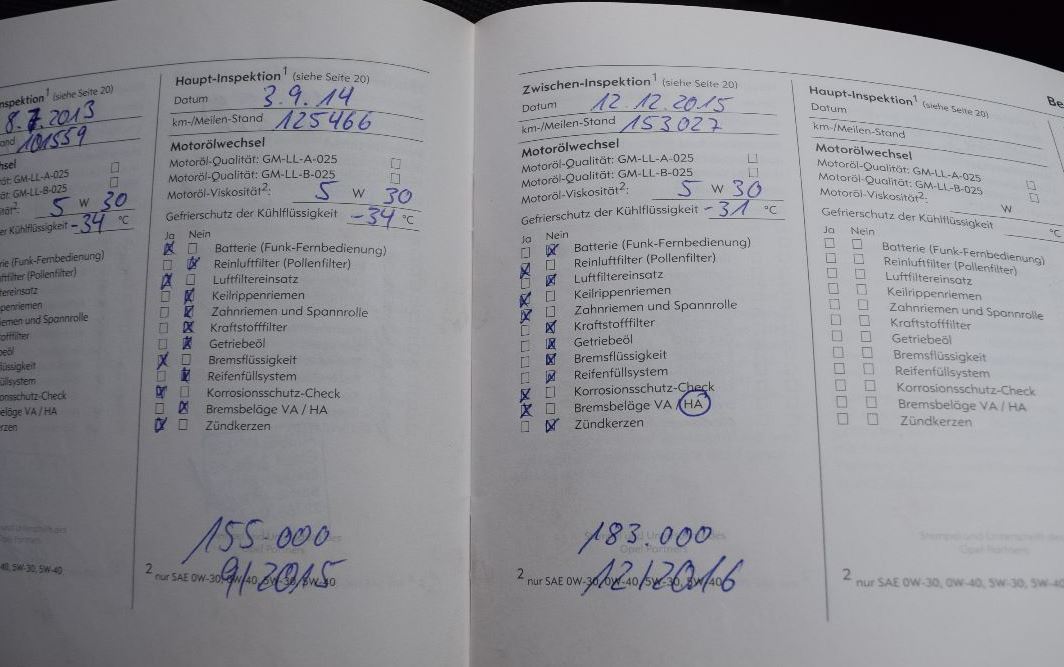 nspektion1 (siehe Seite 20)
8.7.2013
and 101559
hsel
ät: GM-LL-A-025
ät: GM-LL-B-025
sität2: 5 W 30
er Kühlflüssigkeit -34 °C
rie (Funk-Fernbedienung)
ftfilter (Pollenfilter)
tereinsatz
ppenriemen
iemen und Spannrolle
offfilter
eöl
lüssigkeit
üllsystem
sionsschutz-Check
eläge VA / HA
rzen
40, 5W-30, 5W-40
Haupt-Inspektion1 (siehe Seite 20)
Datum 3.9.14
km-/Meilen-Stand 125466
Motorölwechsel
Motoröl-Qualität: GM-LL-A-025
Motoröl-Qualität: GM-LL-B-025
Motoröl-Viskosität2: 5 W 30
Gefrierschutz der Kühlflüssigkeit -34 °C
Ja Nein
Batterie (Funk-Fernbedienung)
Reinluftfilter (Pollenfilter)
Luftfiltereinsatz
Keilrippenriemen
Zahnriemen und Spannrolle
Kraftstofffilter
Getriebeöl
Bremsflüssigkeit
Reifenfüllsystem
Korrosionsschutz-Check
Bremsbeläge VA / HA
Zündkerzen
155.000
2 nur SAE 0W-30, 0W-40, 5W-30, 5W-40
9/2015
Zwischen-Inspektion1 (siehe Seite 20)
Datum 12.12.2015
km-/Meilen-Stand 153027
Motorölwechsel
Motoröl-Qualität: GM-LL-A-025
Motoröl-Qualität: GM-LL-B-025
Motoröl-Viskosität2: 5 W 30
Gefrierschutz der Kühlflüssigkeit -31 °C
Ja Nein
Batterie (Funk-Fernbedienung)
Reinluftfilter (Pollenfilter)
Luftfiltereinsatz
Keilrippenriemen
Zahnriemen und Spannrolle
Kraftstofffilter
Getriebeöl
Bremsflüssigkeit
Reifenfüllsystem
Korrosionsschutz-Check
Bremsbeläge VA / HA
Zündkerzen
183.000
Opel Partners
2 nur SAE 0W-30, 0W-40, 5W-30, 5W-40
12/2016
Haupt-Inspektion1 (siehe Seite 20)
Datum
km-/Meilen-Stand
Motorölwechsel
Motoröl-Qualität: GM-LL-A-025
Motoröl-Qualität: GM-LL-B-025
Motoröl-Viskosität2: W
Gefrierschutz der Kühlflüssigkeit °C
Ja Nein
Batterie (Funk-Fernbedienung)
Reinluftfilter (Pollenfilter)
Luftfiltereinsatz
Keilrippenriemen
Zahnriemen und Spannrolle
Kraftstofffilter
Getriebeöl
Bremsflüssigkeit
Reifenfüllsystem
Korrosionsschutz-Check
Bremsbeläge VA / HA
Zündkerzen
Stempel und Unterschrift des
Opel Partners
2 nur SAE 0W-30, 0W-40, 5W-30, 5W-40
Be